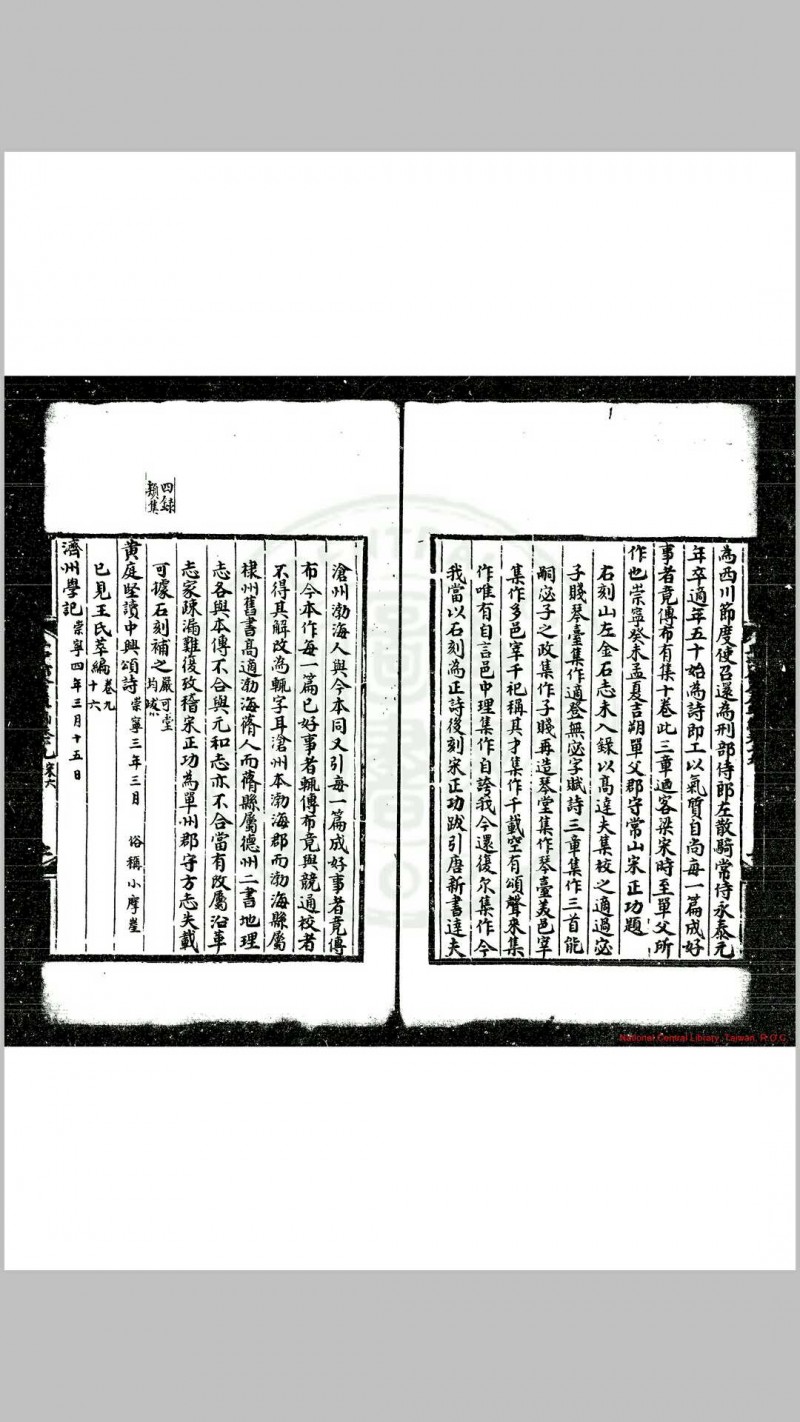 為西川節度使召還為刑部侍郎左散騎常侍永泰元
年卒適年五十始為詩即工以氣質自尚每一篇成好
事者竟傳布有集十卷此三章適客梁宋時至單父所
作也崇寧癸未孟夏吉朔單父郡守常山宋正功題
石刻山左金石志未入錄以高達夫集校之適過宓
子賤琴臺集作適登無宓字賦詩三章集作三首能
嗣宓子之政集作子賤再造琴堂集作琴臺美邑宰
集作多邑宰千祀稱其才集作千載空有頌聲來集
作唯有自言邑中理集作自誇我今還復尔集作今
我當以石刻為正詩後刻宋正功跋引唐新書達夫
滄州渤海人與今本同又引每一篇成好事者竟傳
布今本作每一篇已好事者輒傳布竟與競通校者
不得其解改為輒字耳滄州本渤海郡而渤海縣屬
棣州舊書高適渤海蓨人而蓨縣屬德州二書地理
志各與本傳不合與元和志亦不合當有改屬沿革
志家疎漏難復攷稽宋正功為單州郡守方志失載
可據石刻補之嚴可均 堂
四錄
類集
黃庭堅讀中興頌詩崇寧三年三月 俗稱小摩崖
已見王氏萃編卷九十六
濟州學記崇寧四年三月十五日
National Central Library, Taiwan, R.O.C.